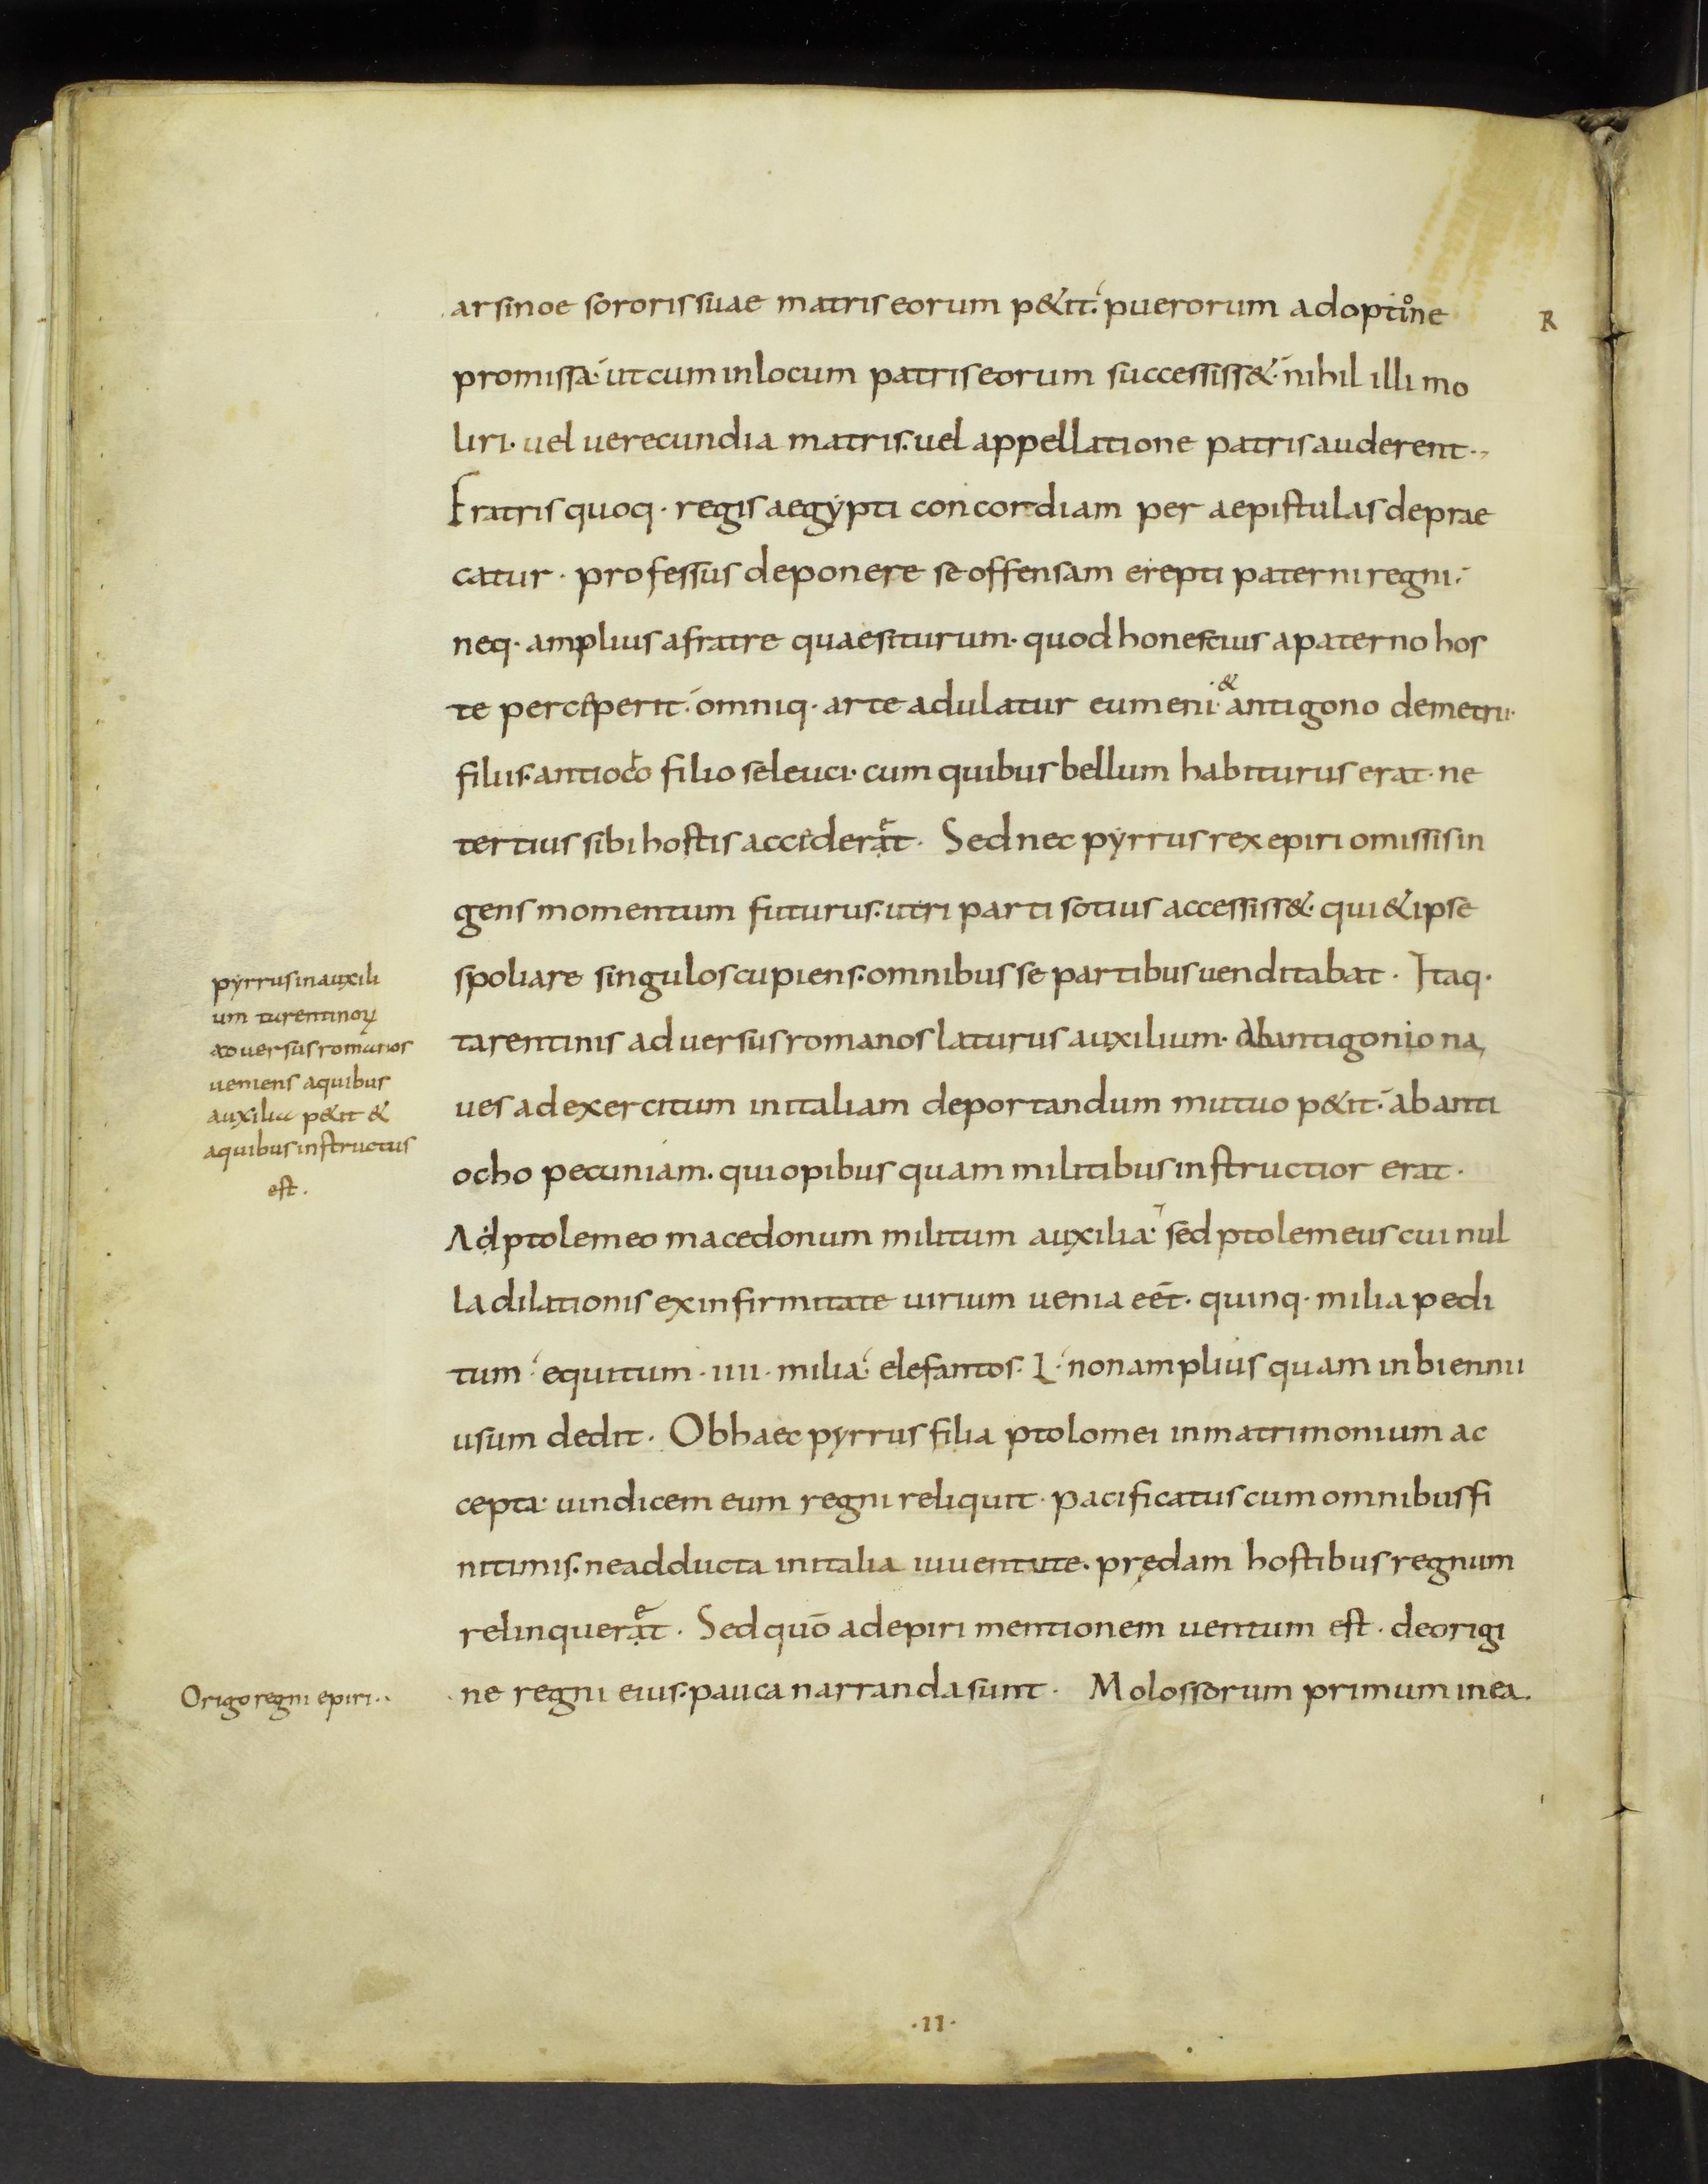 arsinoe sororis suae matris eorum p&it. puerorum adoptione
R
promissa. ut cum in locum patris eorum successiss&. nihil illi mo
liri. uel uerecundia matris. uel appellatione patris auderent.,
Fratris quoq. regis aegypti concordiam per aepistulas deprae
catur. professus deponere se offensam erepti paterni regni.
neq. amplius a fratre quaesiturum. quod honestius a paterno hos
te perciperit. omniq. arte adulatur eumeni. & antigono demetrii.
filiis. antiocho filio seleuci. cum quibus bellum habiturus erat. ne
tertius sibi hostis acciderat e. Sed nec pyrrus rex epiri omissis in
gens momentum futurus. utri parti sotius accessiss&. qui & ipse
spoliare singulos cupiens. omnibus se partibus uenditabat. Itaq.
tarentinis aduersus romanos laturus auxilium. Ab antigonio na
ues ad exercitum in italiam deportandum mutuo p&it. ab anti
ocho pecuniam. qui opibus quam militibus instructior erat.
Ad ptolemeo macedonum militum auxilia. sed ptolemeus cui nul
la dilationis ex infirmitate uirium uenia eēt. quinq. milia pedi
tum. equitum. iiii. milia. elefantos. L. non amplius quam in biennii
usum dedit. Ob haec pyrrus filia ptolomei in matrimonium ac
cepta. uindicem eum regni reliquit. pacificatus cum omnibus fi
nitimis. ne adducta in italia iuuentute. prędam hostibus regnum
relinquerat e. Sed quō ad epiri mentionem uentum est. de origi
ne regni eius. pauca narranda sunt. Molossorum primum in ea.
pyrrus in auxili
um turentinoꝝ
aduersus romanos
ueniens a quibus
auxilia p&it &
a quibus instructus
est.
Origo regni epiri..
.11.